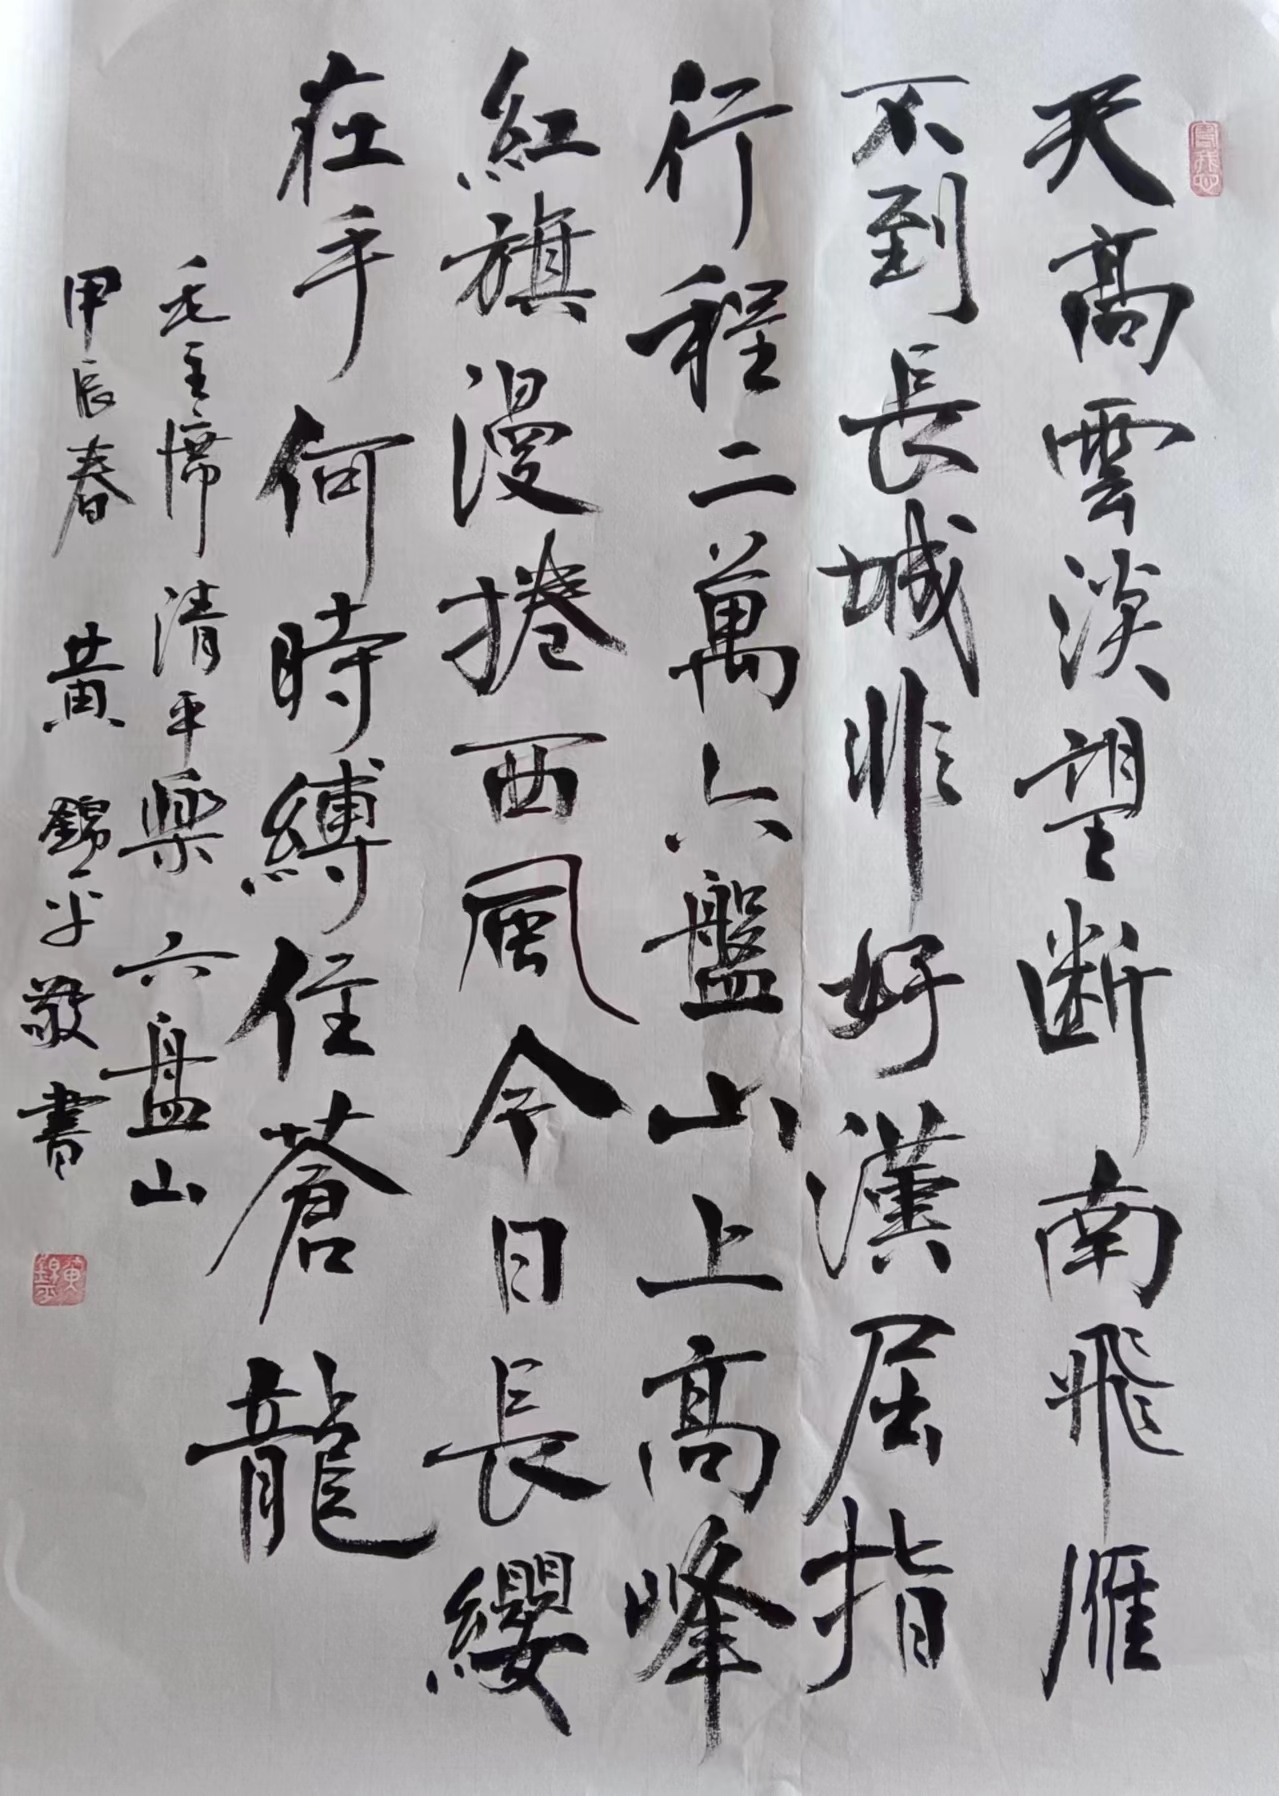 天高雲淡望斷南飛雁
不到長城非好漢屈指
行程二萬六盤山上高峰
紅旗漫捲西風今日長纓
在手何時縛住蒼龍
毛主席清平樂六盤山
甲辰春黃錦平敬書
黃錦平